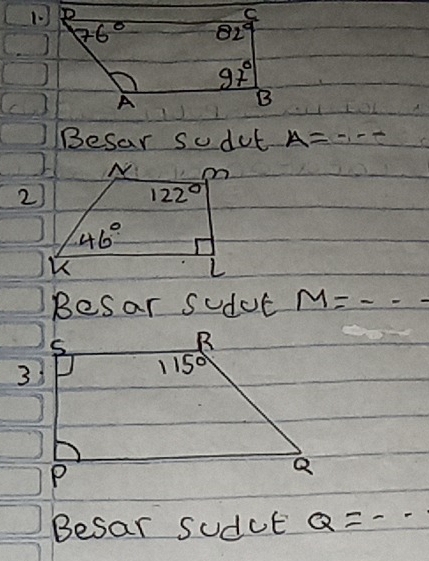 1. D C
76° 82°
97°
A B
Besar sudut A = ----
2 N M
122°
46°
K L
Besar sudut M = ----
S R
3. 115°
P Q
Besar sudut Q = ---